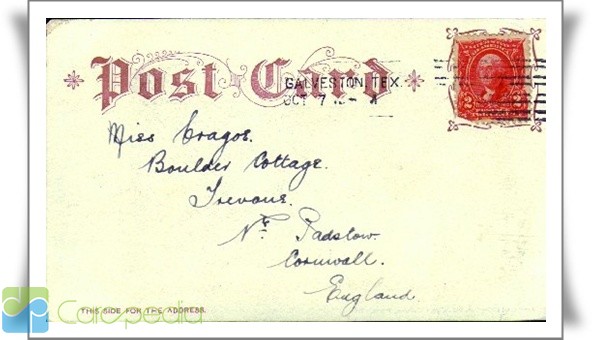 Post Card
GALVESTON, TEX.
OCT 7
Miss Cragos.
Boulder Cottage.
Trevone.
Nr. Padstow.
Cornwall.
England.
THIS SIDE FOR THE ADDRESS.
Caropedia